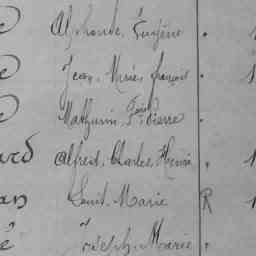 e Alphonse, Eugène . 1
e Jean, Marie, français . 1
e Mathurin, Fois Pierre .
ard Alfred, Charles, Henri . 1
an Saint, Marie R 1
é Joseph, Marie .